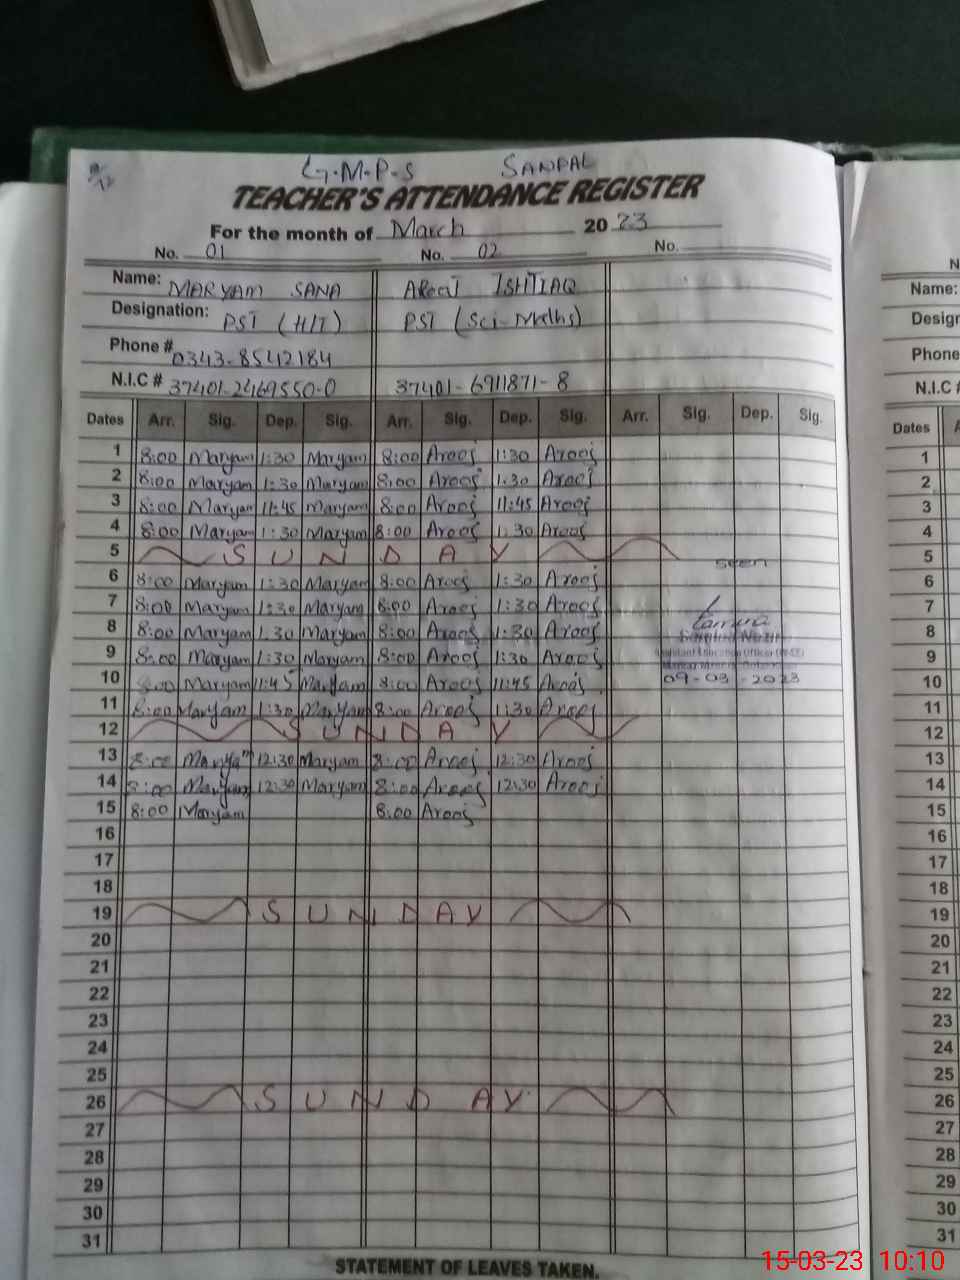 9/12
G.M.P.S SANPAL
TEACHER'S ATTENDANCE REGISTER
For the month of March 2023
No. 01 No. 02 No.
Name: MARYAM SANA Arooj ISHTIAQ
Designation: PST (H/T) PST (Sci-Maths)
Phone # 0343-8542184
N.I.C # 37401-2469550-0 37401-6911871-8
Dates Arr. Sig. Dep. Sig. Arr. Sig. Dep. Sig. Arr. Sig. Dep. Sig.
1 8:00 Maryam 1:30 Maryam 8:00 Arooj 1:30 Arooj
2 8:00 Maryam 1:30 Maryam 8:00 Arooj 1:30 Arooj
3 8:00 Maryam 11:45 Maryam 8:00 Arooj 11:45 Arooj
4 8:00 Maryam 1:30 Maryam 8:00 Arooj 1:30 Arooj
5 SUNDAY
seen
6 8:00 Maryam 1:30 Maryam 8:00 Arooj 1:30 Arooj
7 8:00 Maryam 1:30 Maryam 8:00 Arooj 1:30 Arooj
8 8:00 Maryam 1:30 Maryam 8:00 Arooj 1:30 Arooj
9 8:00 Maryam 1:30 Maryam 8:00 Arooj 1:30 Arooj
10 8:00 Maryam 11:45 Maryam 8:00 Arooj 11:45 Arooj
09-03-2023
11 8:00 Maryam 1:30 Maryam 8:00 Arooj 11:30 Arooj
12 SUNDAY
13 8:00 Maryam 12:30 Maryam 8:00 Arooj 12:30 Arooj
14 8:00 Maryam 12:30 Maryam 8:00 Arooj 12:30 Arooj
15 8:00 Maryam 8:00 Arooj
16
17
18
19 SUNDAY
20
21
22
23
24
25
26 SUNDAY
27
28
29
30
31
STATEMENT OF LEAVES TAKEN.
N
Name:
Design
Phone
N.I.C #
Dates A
1
2
3
4
5
6
7
8
9
10
11
12
13
14
15
16
17
18
19
20
21
22
23
24
25
26
27
28
29
30
31
15-03-23 10:10